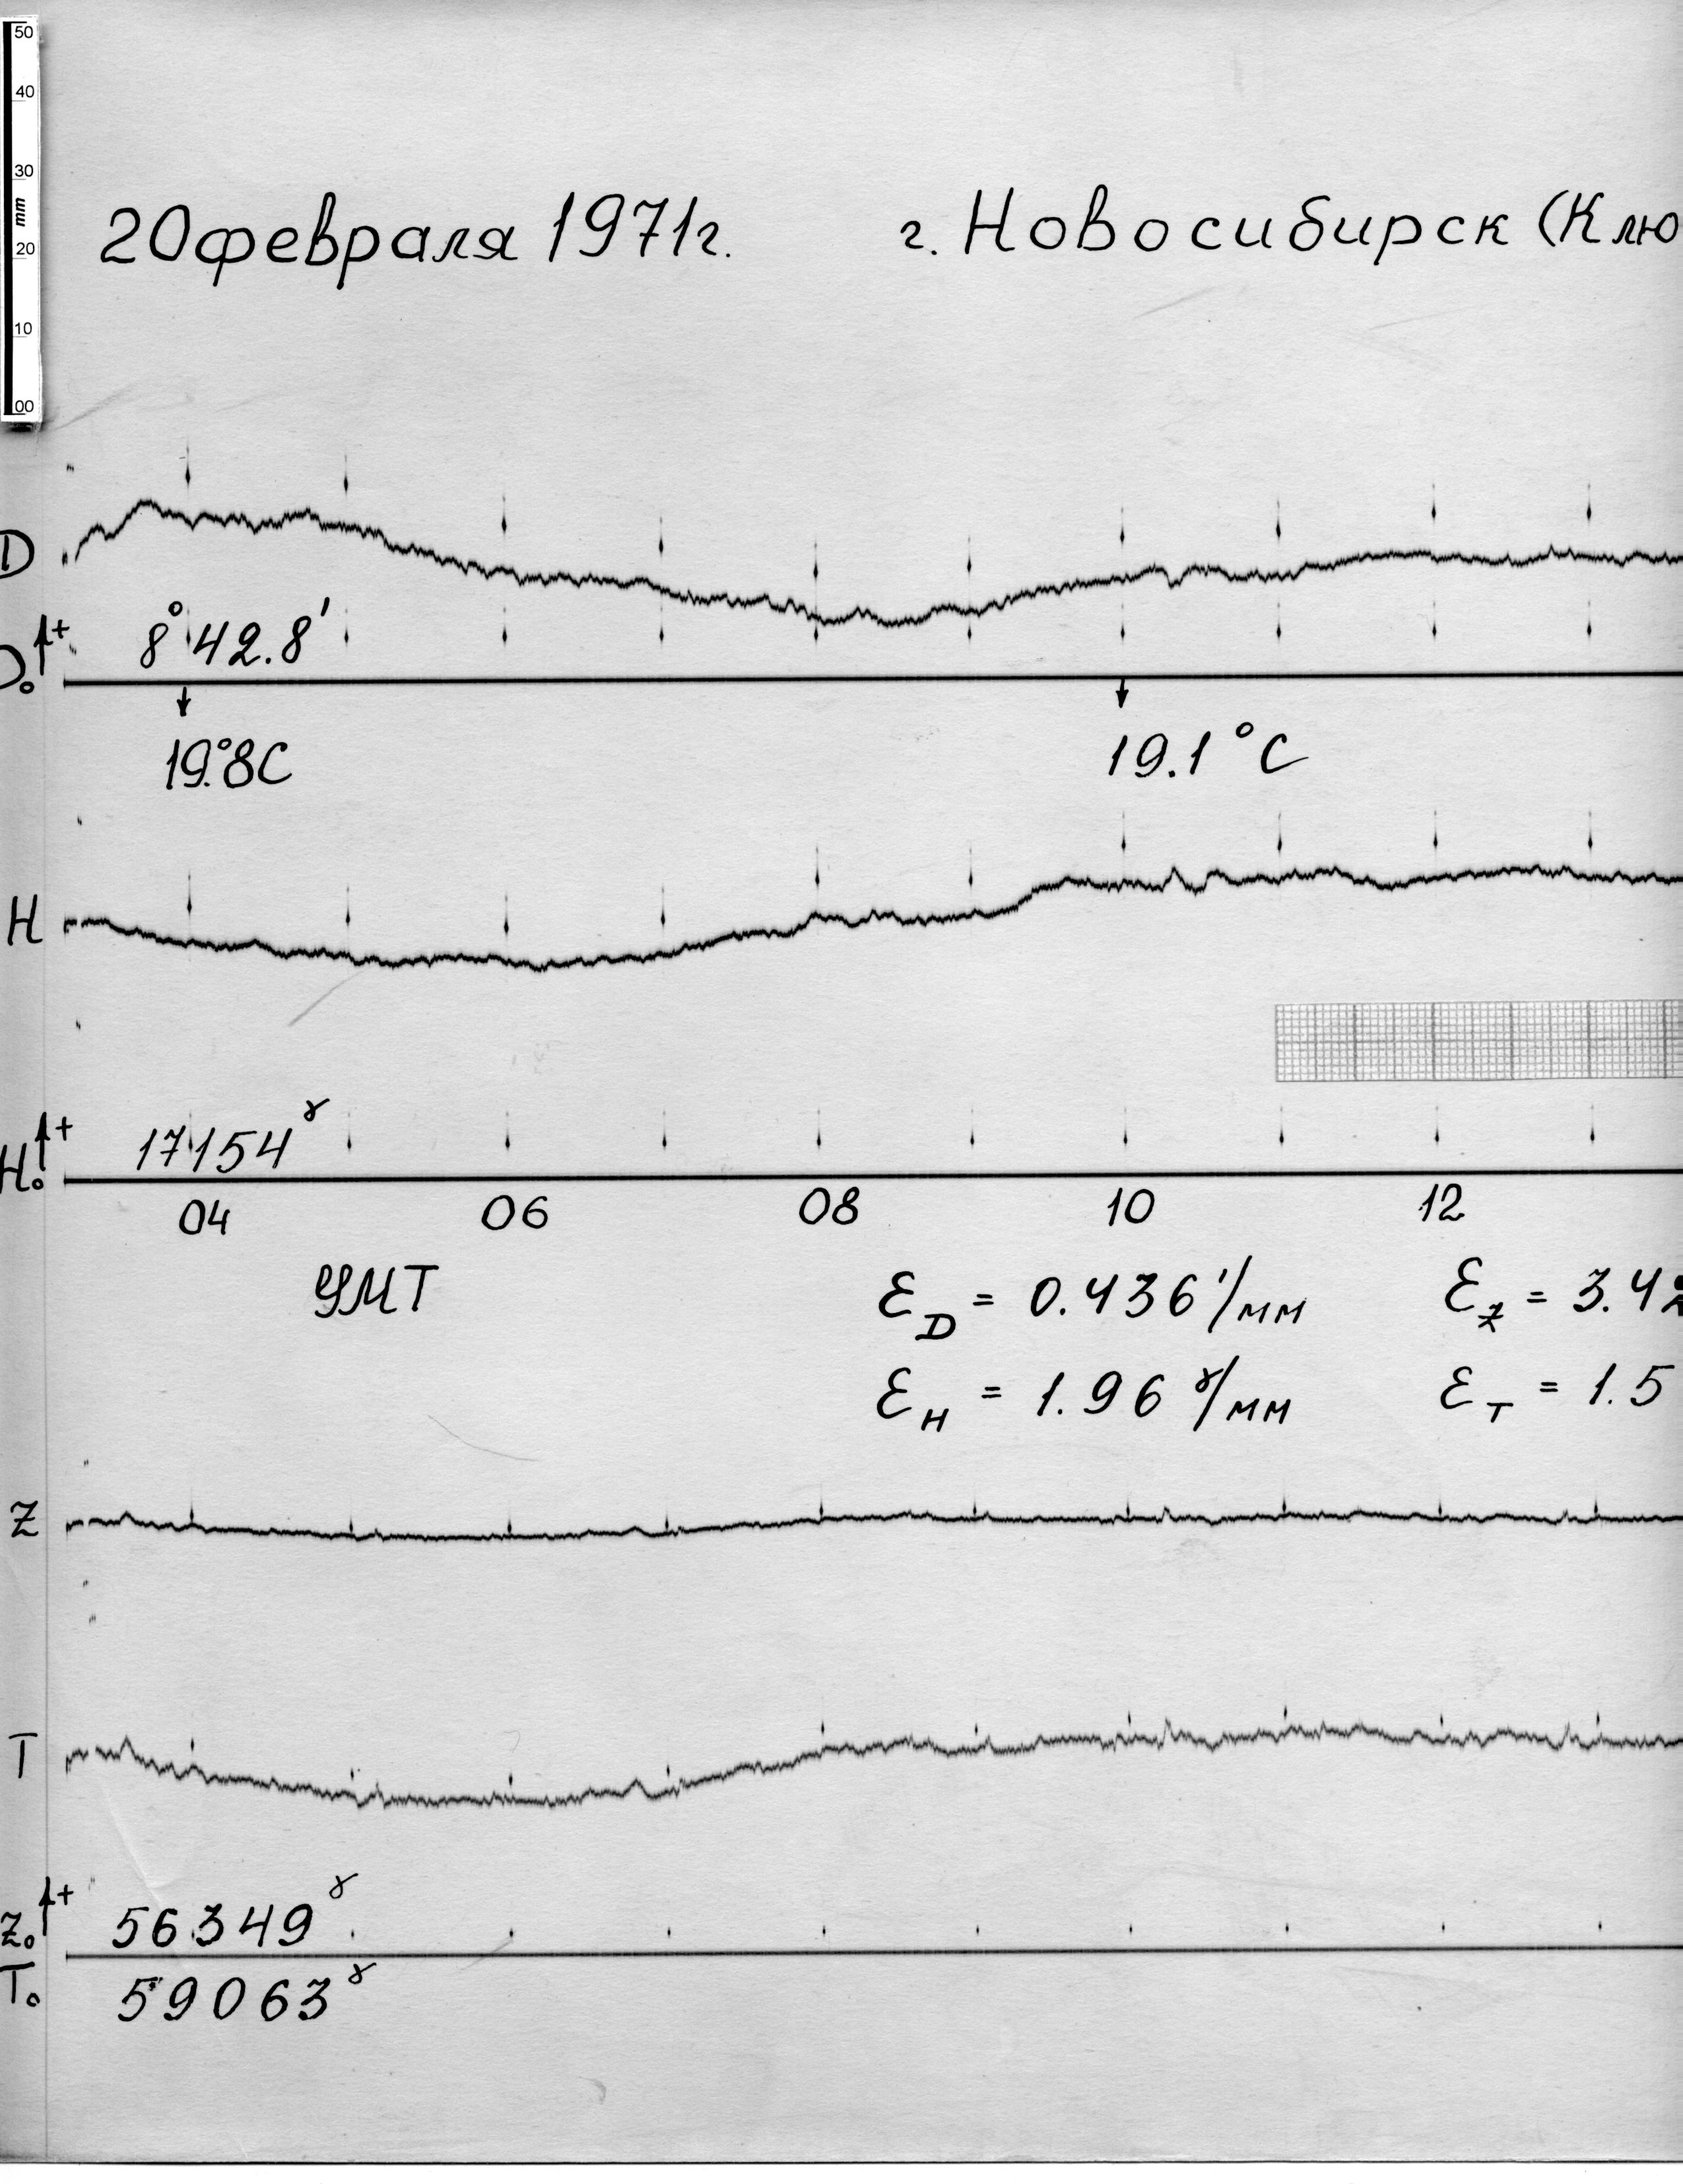 50
40
30
mm
20
10
00
20 февраля 1971г. г. Новосибирск (Клю
D
8°42.8'
+
D₀
19.°8С
19.1 °С
H
17154 ɣ
+
H₀
04 06 08 10 12
УМТ
ℰ_D = 0.436 '/мм ℰ_Z = 3.42
ℰ_H = 1.96 ɣ/мм ℰ_T = 1.5
Z
T
56349 ɣ
+
Z₀
T₀ 59063 ɣ